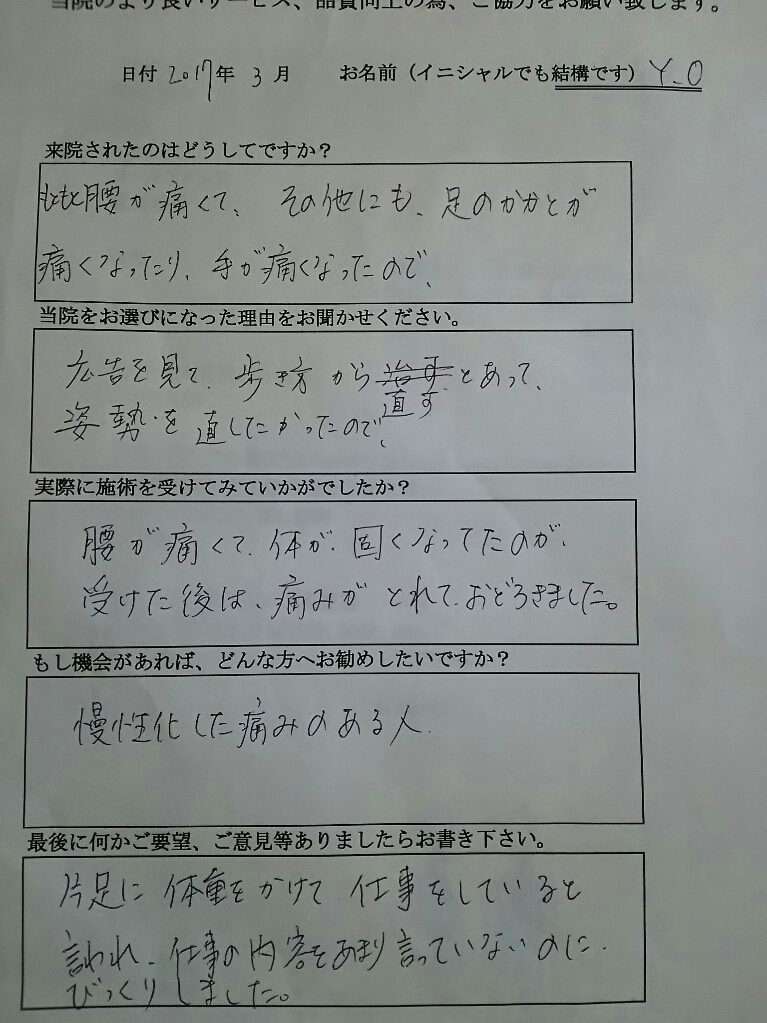 当院のより良いサービス、品質向上の為、ご協力をお願い致します。
日付 2017年 3月 お名前（イニシャルでも結構です） Y.O
来院されたのはどうしてですか？
もともと腰が痛くて、その他にも、足のかかとが
痛くなったり、手が痛くなったので、
当院をお選びになった理由をお聞かせください。
広告を見て、歩き方から治すとあって、
直す
姿勢を直したかったので、
実際に施術を受けてみていかがでしたか？
腰が痛くて、体が、固くなってたのが、
受けた後は、痛みがとれて、おどろきました。
もし機会があれば、どんな方へお勧めしたいですか？
慢性化した痛みのある人.
最後に何かご要望、ご意見等ありましたらお書き下さい。
片足に体重をかけて仕事をしていると
言われ、仕事の内容をあまり言っていないのに、
びっくりしました。